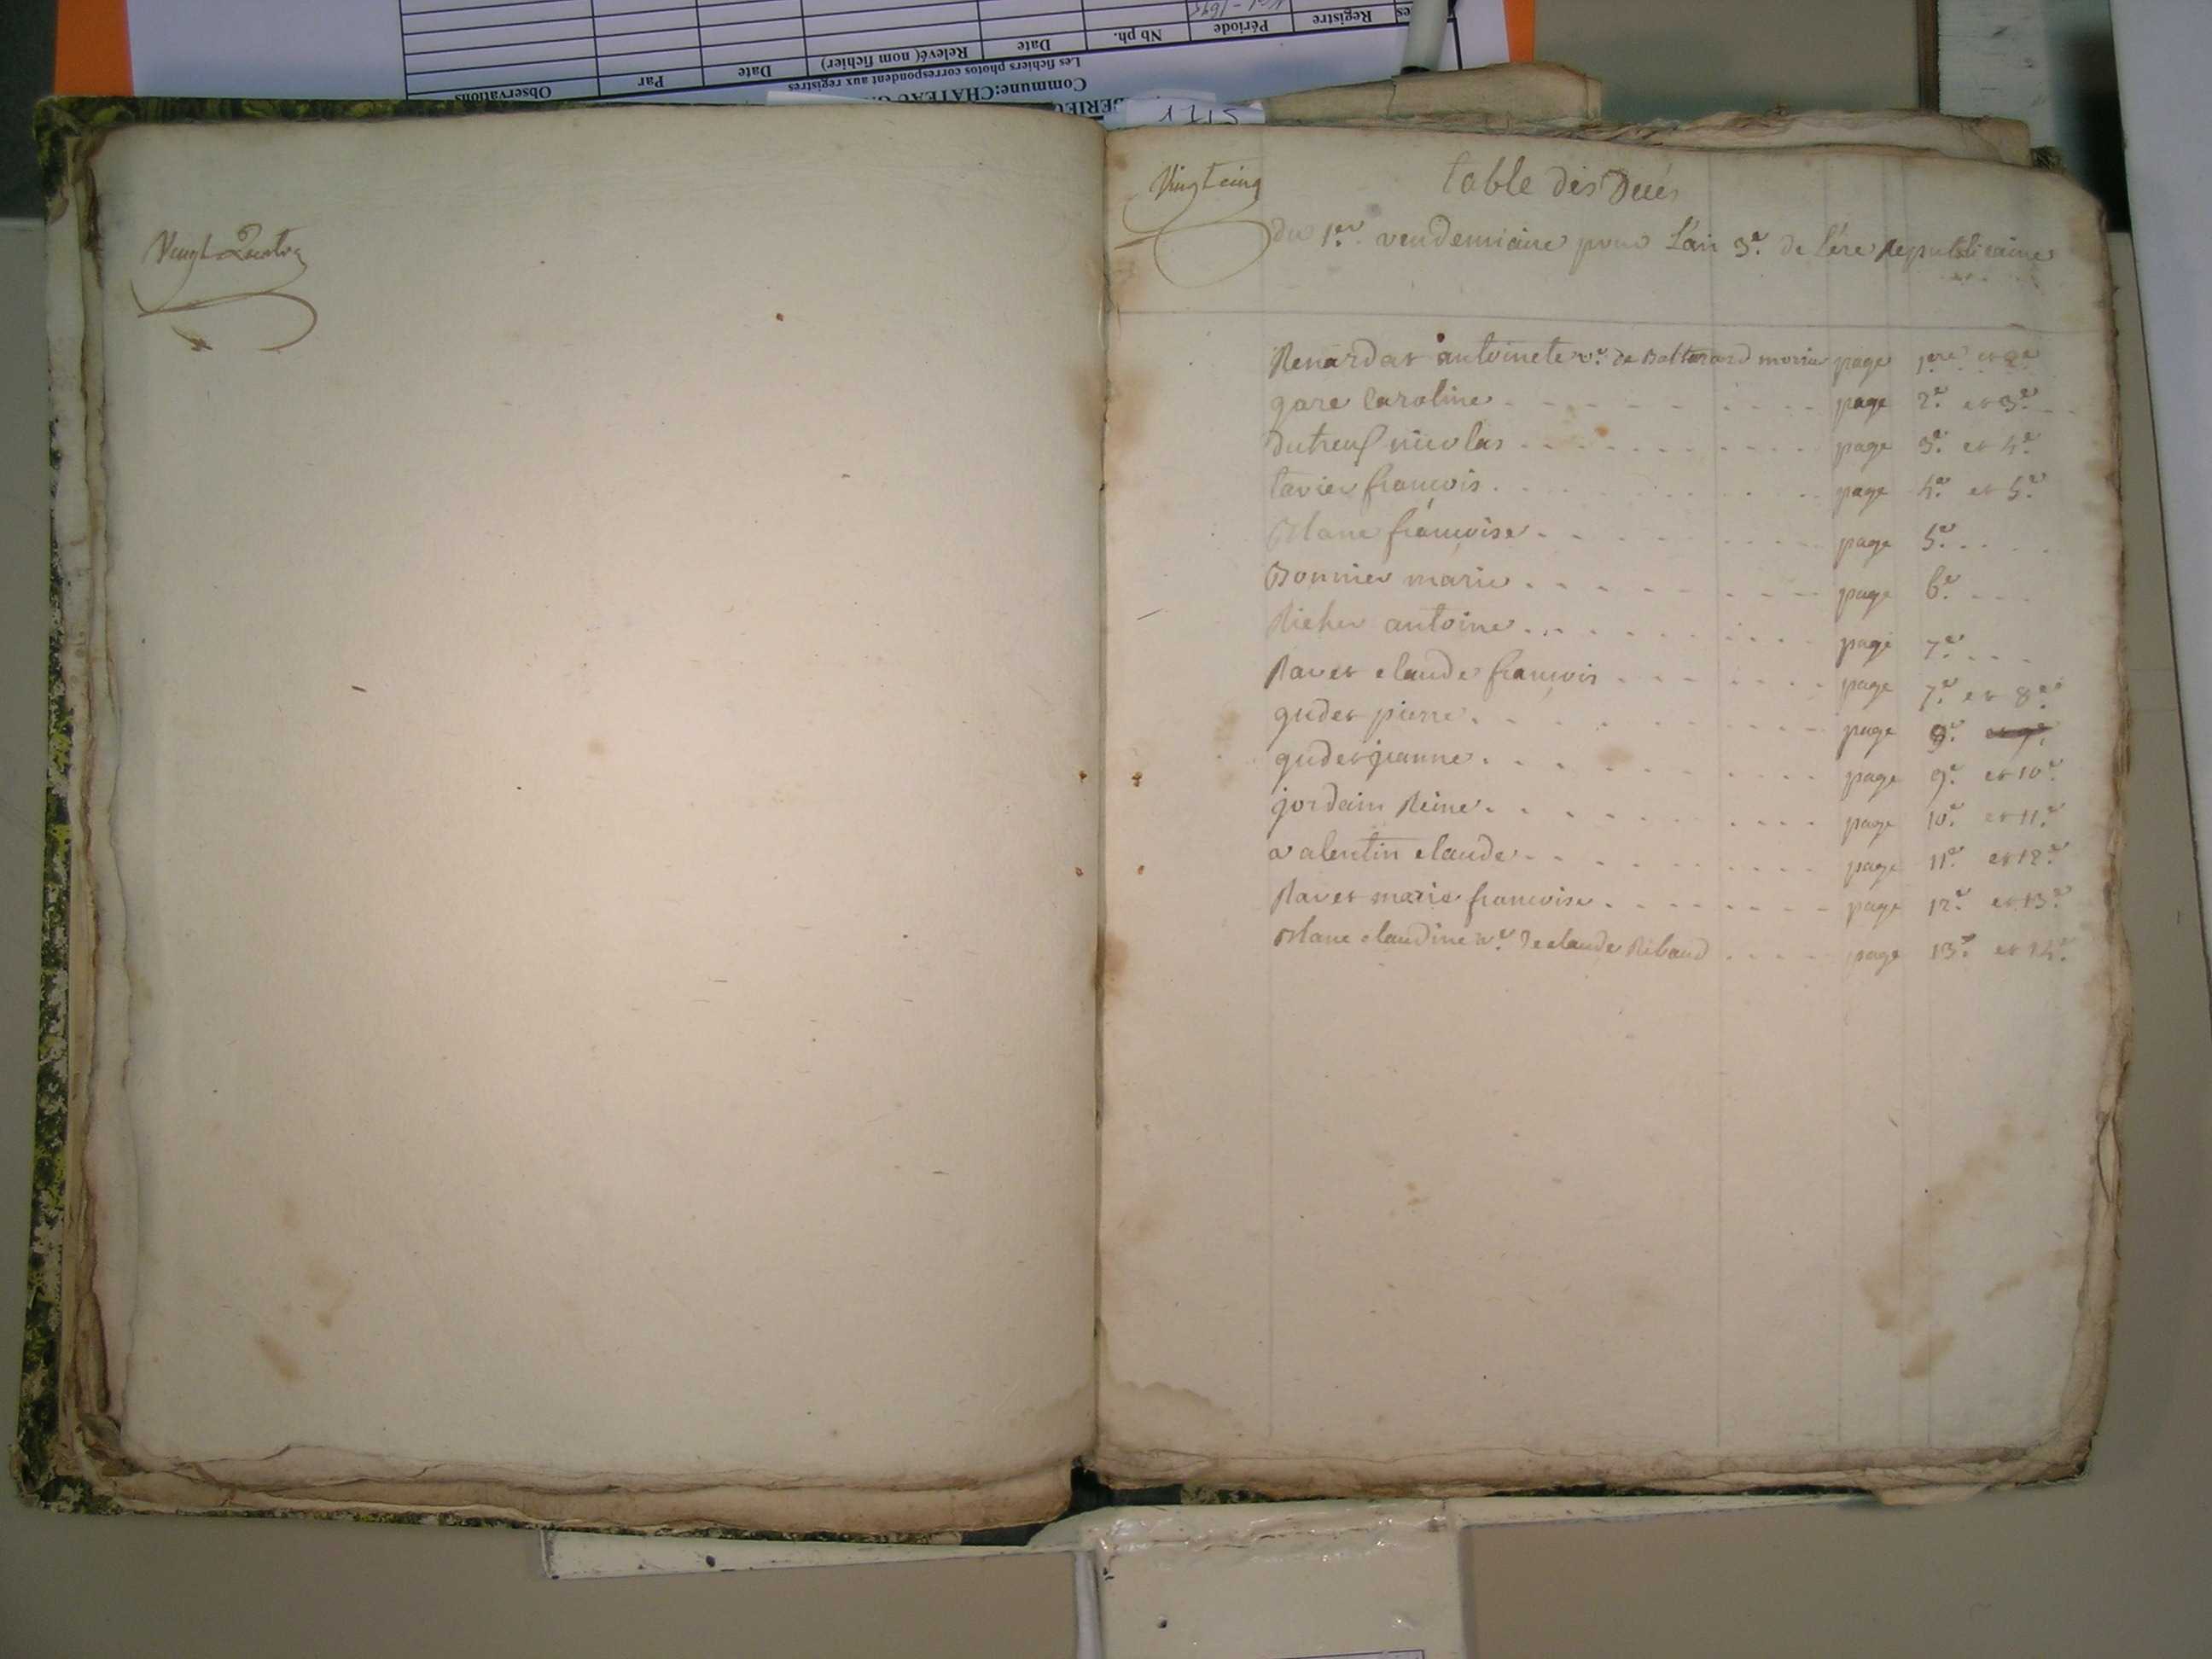 Observations
Par
Date
Relevé( nom fichier)
Date
Nb ph.
Période
Registre
Les fichiers photos correspondent aux registres
Commune:CHATEAU
Vingt Quatre
Vingt cinq
table des Décés
du 1.er vendemiaire pour L'an 3.e de L'ére Republicaine
Renardat antoinete v.e de Batterard morin page 1ere et 2e
gare Caroline page 2.e et 3.e
Dutreuf nicolas page 3.e et 4.e
tavier francois page 4.e et 5.e
Blanc françoise page 5.e
Bonnier marie page 6.e
Richer antoine page 7.e
Ravet claude françois page 7.e et 8.e
gudet pierre page 9.e
gudet jeanne page 9.e et 10.e
jordain Reine page 10.e et 11.e
valentin claude page 11.e et 12.e
Ravet marie francoise page 12.e et 13.e
Blanc claudine v.e de claude Ribaud page 13.e et 14.e